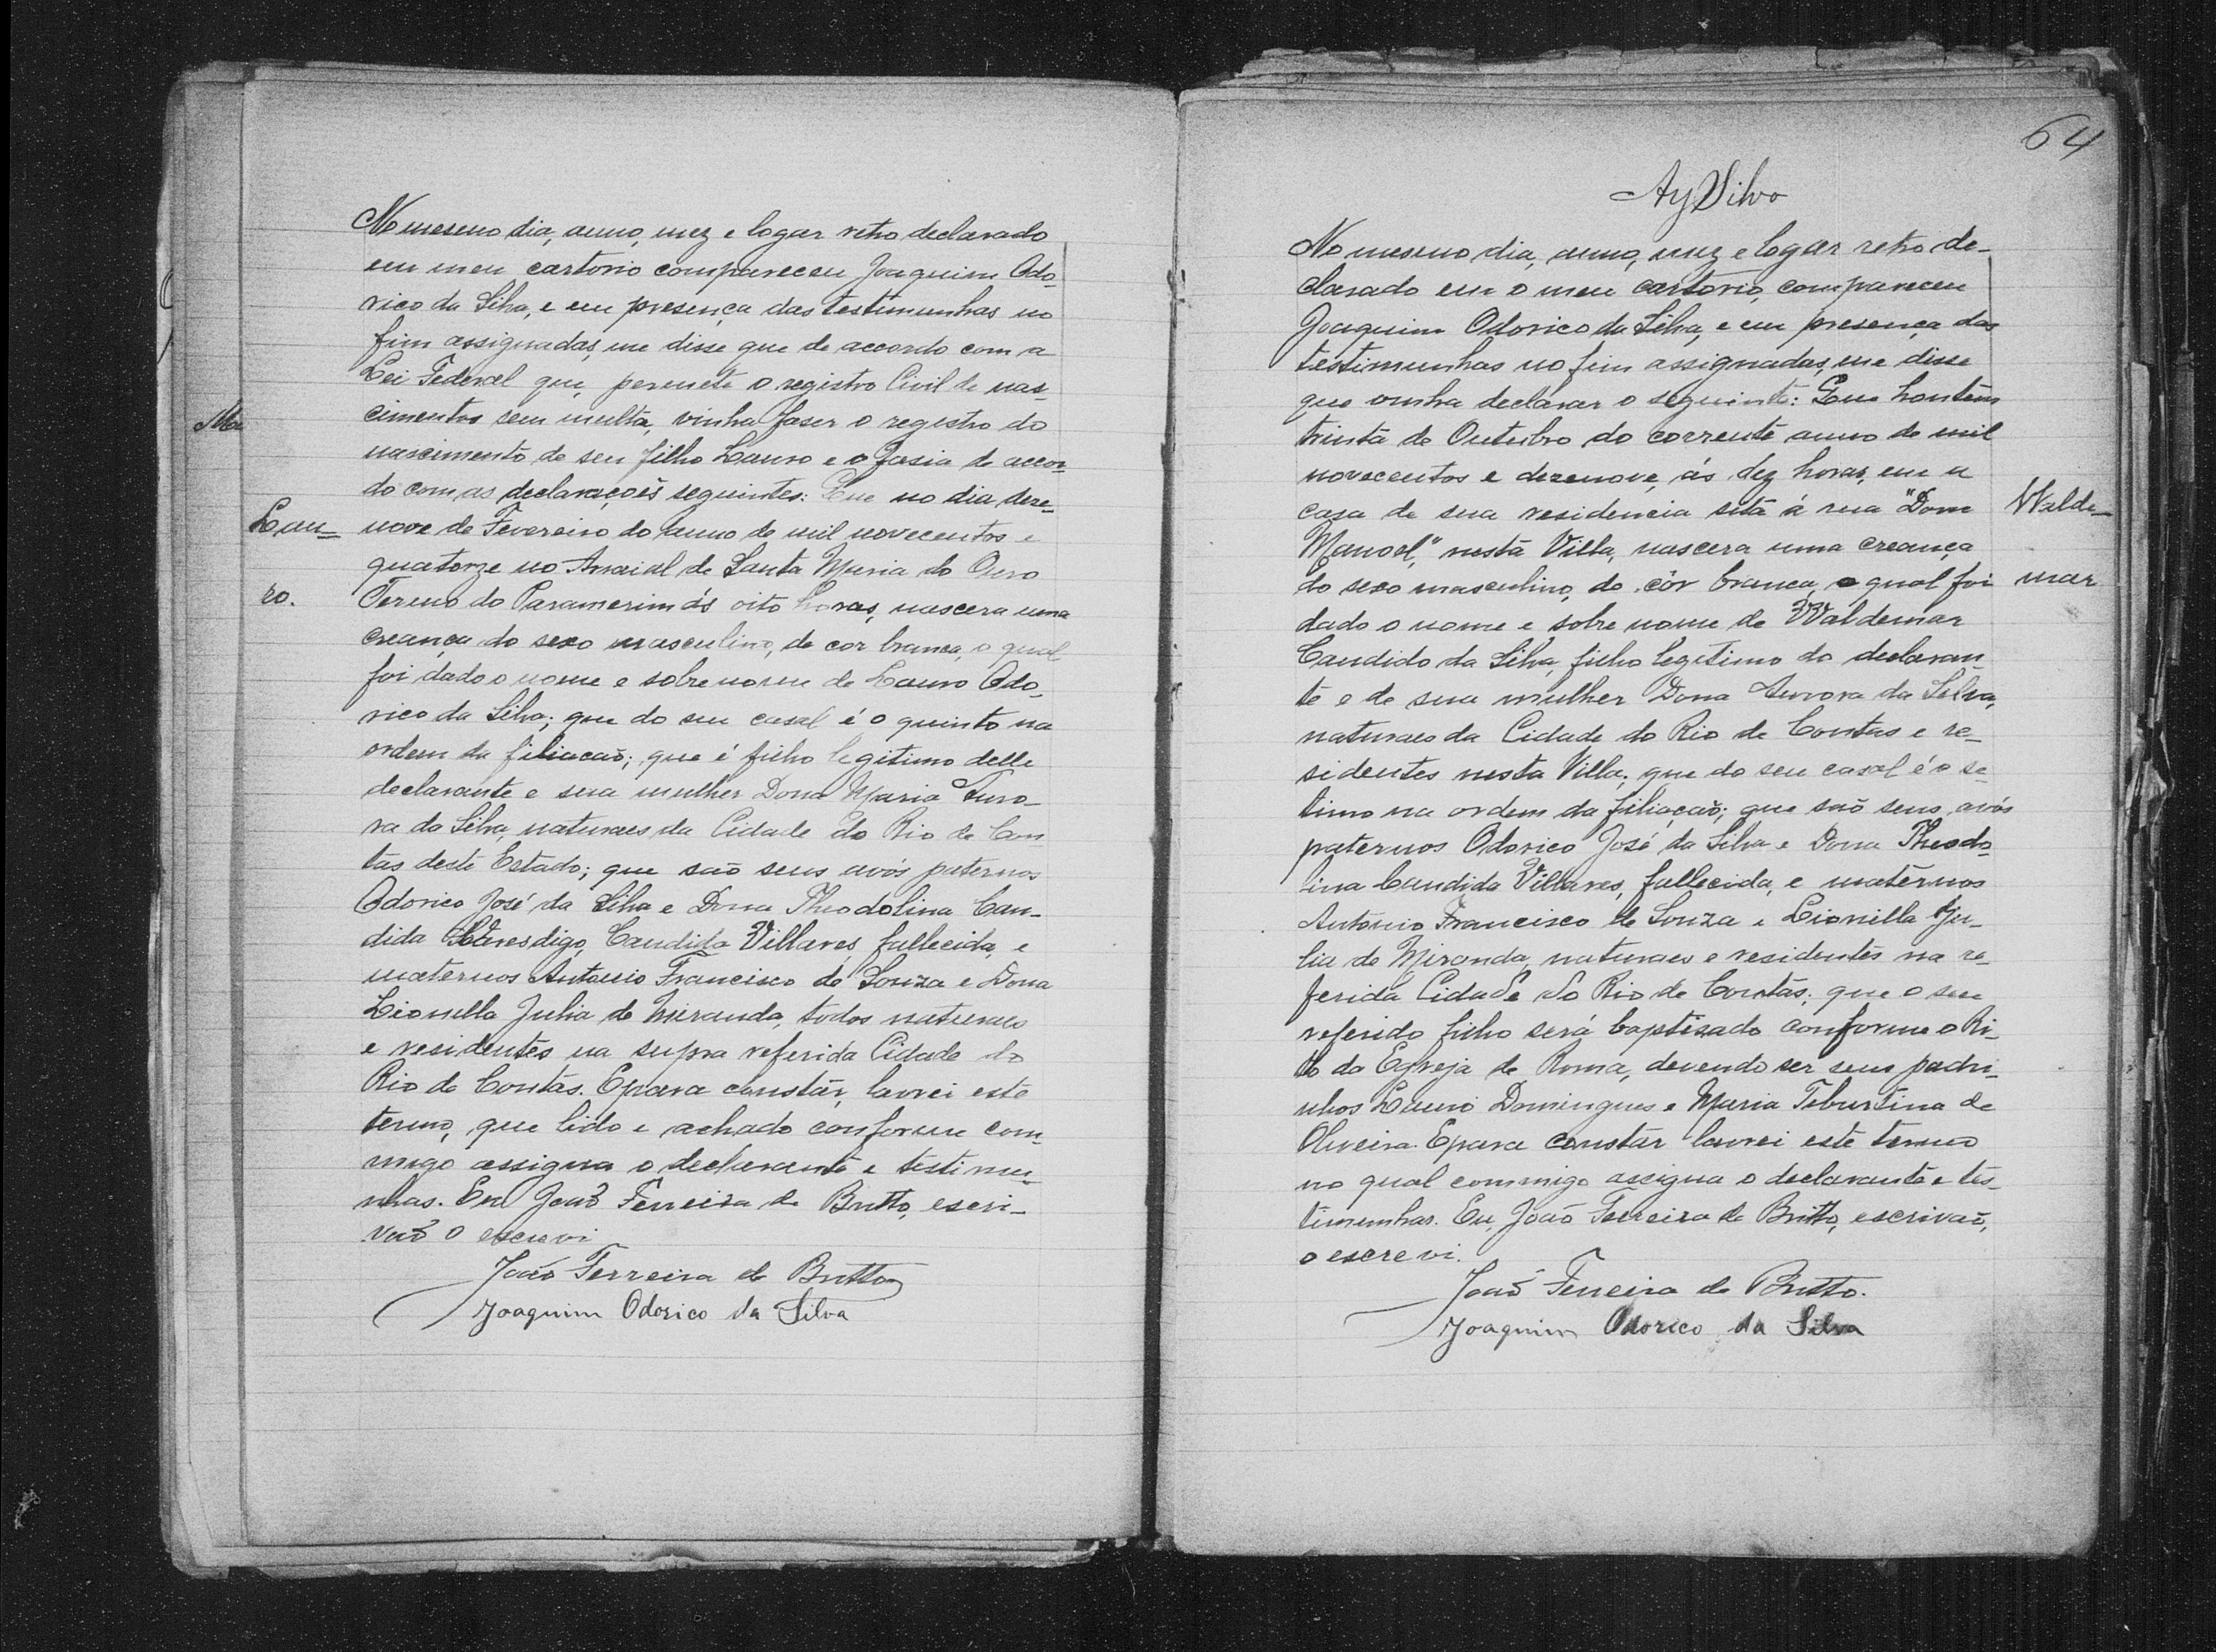 No mesmo dia, anno, mez e logar retro declarado
em meu cartorio compareceu Joaquim Odo-
rico da Silva, e em presença das testimunhas no
fim assignadas, me disse que de accordo com a
Lei Federal que permete o registro Civil de nas-
cimentos sem multa, vinha faser o registro do
nascimento de seu filho Lauro e o fasia de accor-
do com as declarações seguintes: Que no dia deze-
nove de Fevereiro do anno de mil novecentos e
quatorze no Arraial de Santa Maria do Ouro
Termo do Paramerim ás oito horas, nascera uma
creança do sexo masculino, de cor branca, o qual
foi dado o nome e sobre nome de Lauro Odo-
rico da Silva; que do seu casal é o quinto na
ordem da filiacaõ; que é filho legitimo delle
declarante e sua mulher Dona Maria Auro-
ra da Silva, naturaes da Cidade do Rio de Con
tas deste Estado; que saõ seus avós paternos
Odorico José da Silva e Dona Theodolina Can-
dida digo, Candida Villares, fallecida, e
maternos Antonio Francisco de Souza e Dona
Lionilla Julia de Miranda, todos naturaes
e residentes na supra referida Cidade do
Rio de Contas. E para constar, lavrei este
termo, que lido e achado conforme com-
migo assigna o declarante e testimu-
nhas. Eu João Ferreira de Britto, escri-
vaõ o escrevi
João Ferreira de Britto
Joaquim Odorico da Silva
Ma
Lau-
ro.
64
Ay Silva
No mesmo dia, anno, mez e logar retro de-
clarado em o meu cartorio, compareceu
Joaquim Odorico da Silva, e em presença das
testimunhas no fim assignadas, me disse
que vinha declarar o seguinte: Que hontem
trinta de Outubro do corrente anno de mil
novecentos e dezenove, ás dez horas, em a
casa de sua residencia sita á rua "Dom
Manoel," nesta Villa, nascera uma creança
do sexo masculino, de côr branca, o qual foi
dado o nome e sobre nome de Waldemar
Candido da Silva, filho legitimo do declaran
te e de sua mulher Dona Aurora da Silva,
naturaes da Cidade do Rio de Contas e re-
sidentes nesta Villa; que do seu casal é o se-
timo na ordem da filiaçaõ; que saõ seus avós
paternos Odorico José da Silva e Dona Theodo-
lina Candida Villares, fallecida, e maternos
Antonio Francisco de Souza e Lionilla Ju-
lia de Miranda, naturaes e residentes na re-
ferida Cidade do Rio de Contas; que o seu
referido filho será baptisado conforme o Ri-
to da Egreja de Roma, devendo ser seus padri-
nhos Lauro Domingues e Maria Teburtina de
Oliveira. E para constar lavrei este termo
no qual commigo assigna o declarante e tes-
timunhas. Eu, João Ferreira de Britto, escrivaõ,
o escrevi.
João Ferreira de Britto.
Joaquim Odorico da Silva
Walde-
mar